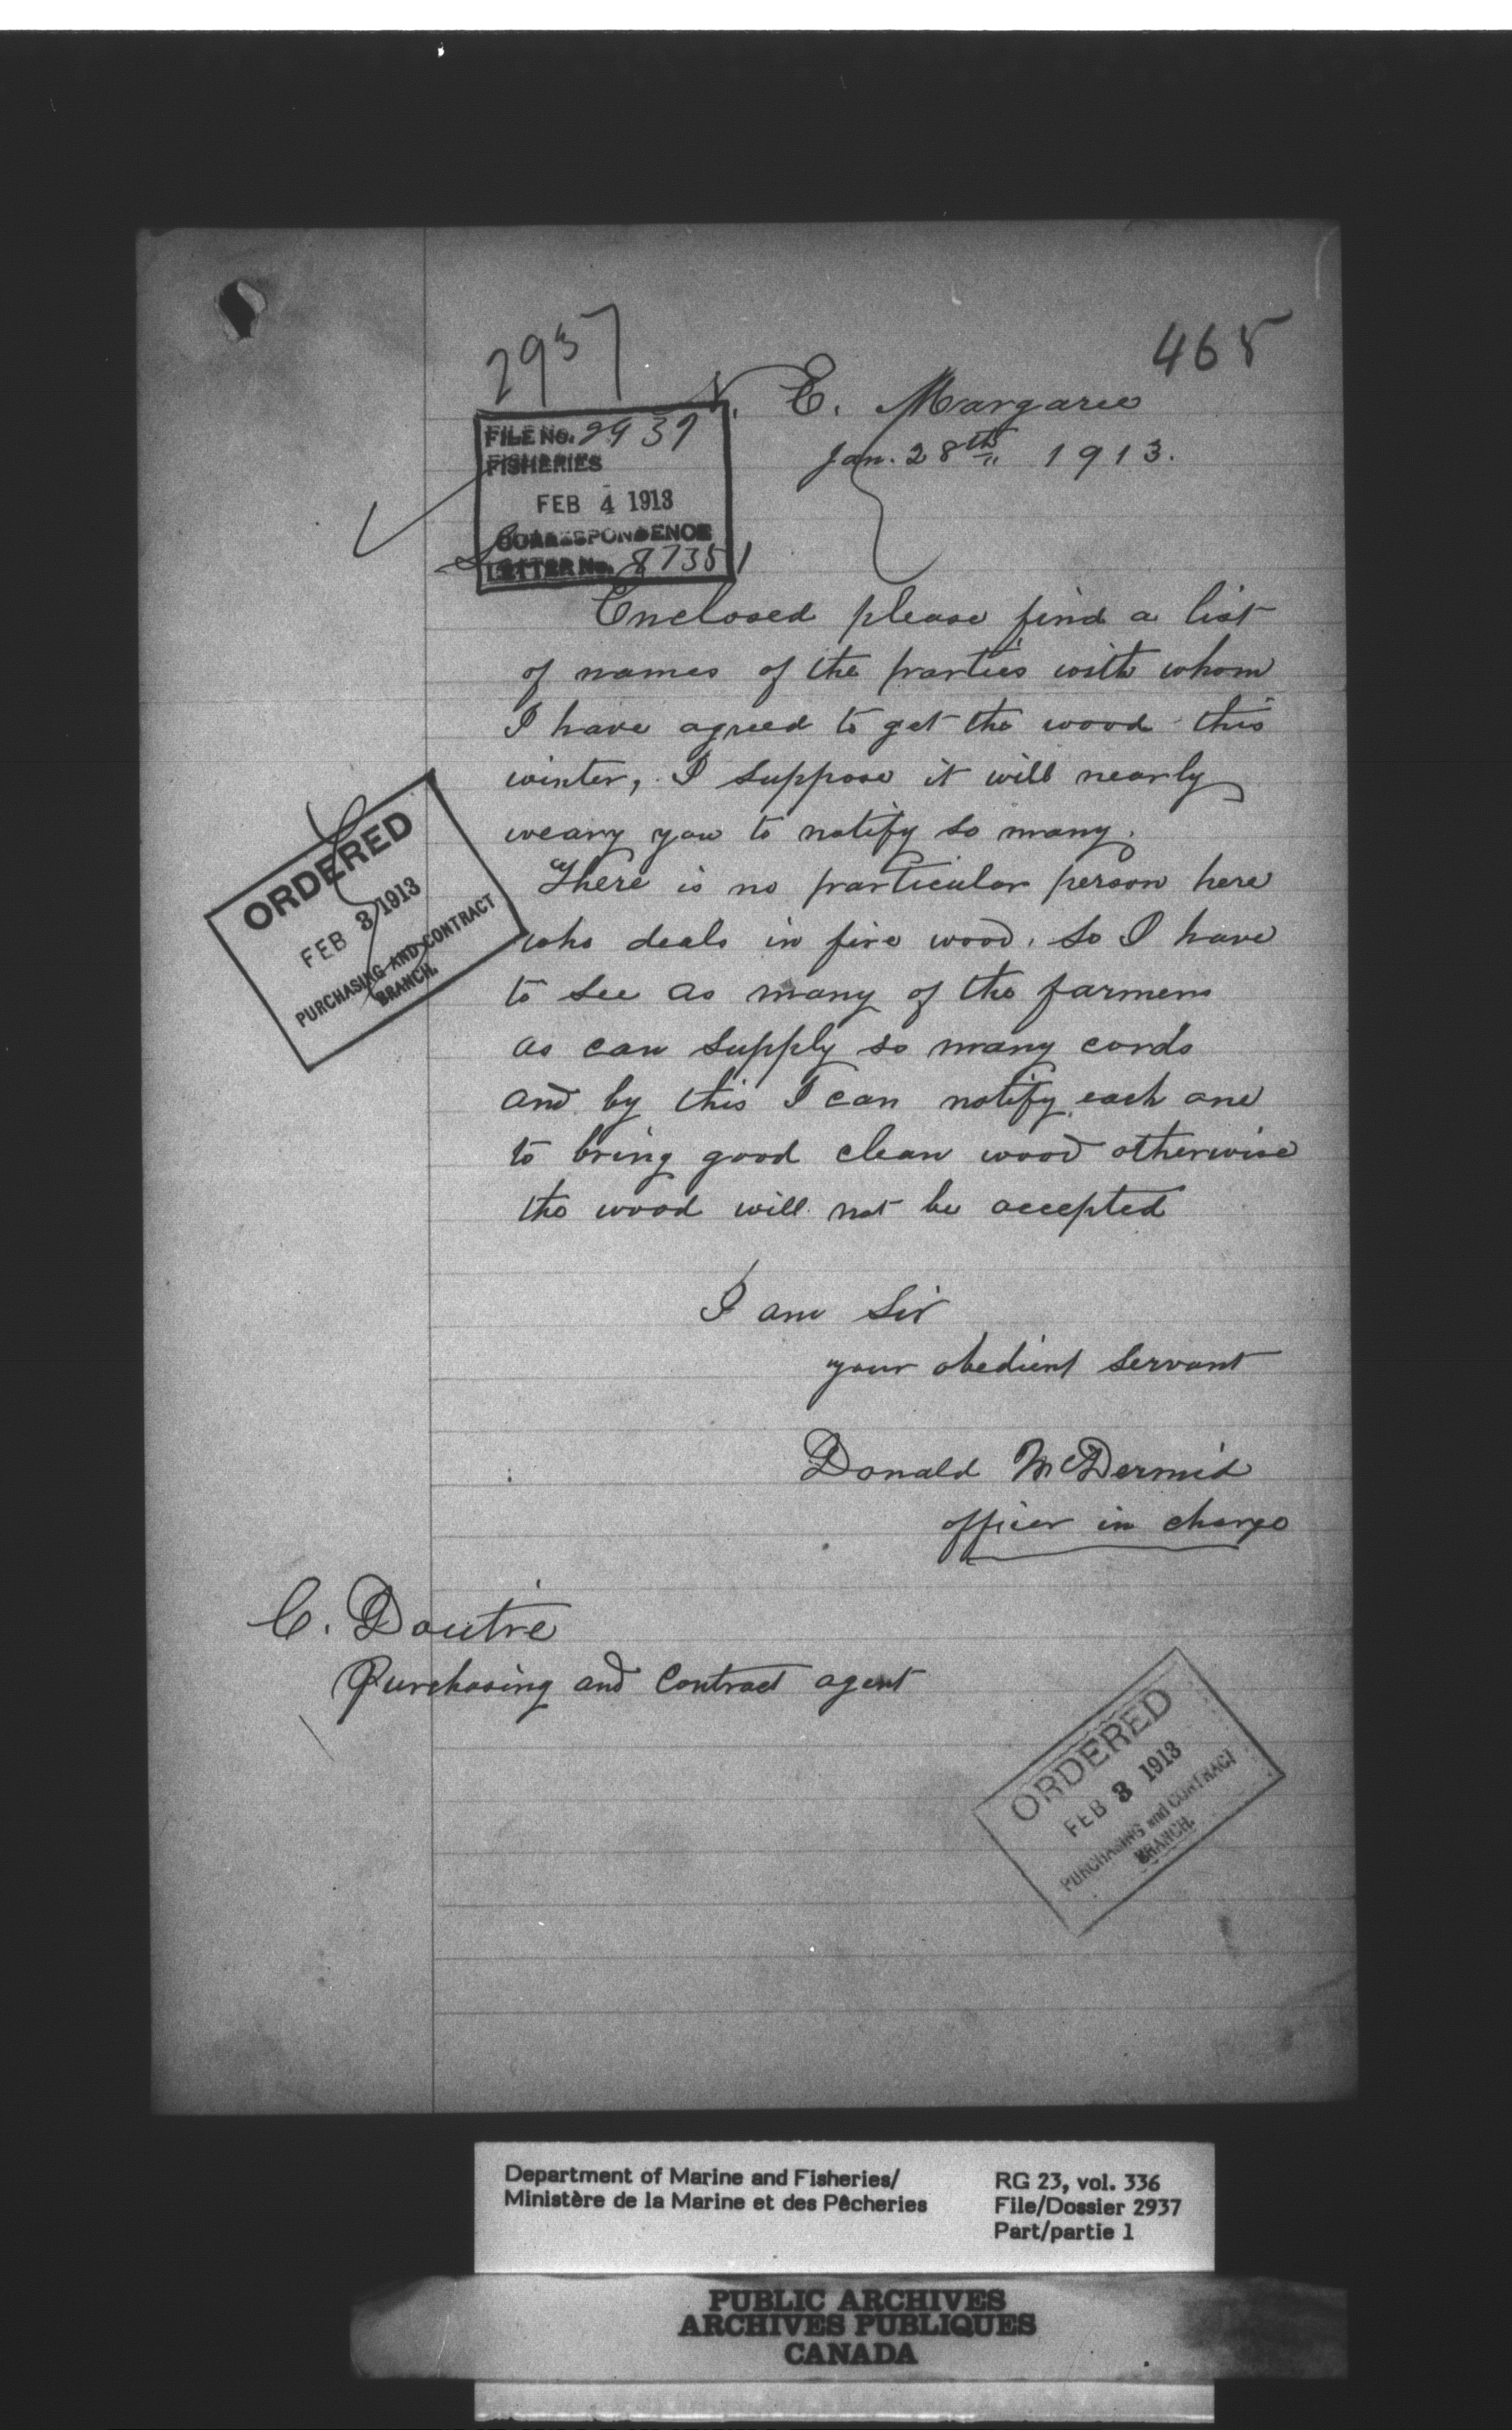 2937
468
N. E. Margaree
Jan. 28th 1913.
FILE No. 2937
FISHERIES
FEB 4 1913
CORRESPONDENCE
LETTER No. 87351
Enclosed please find a list
of names of the parties with whom
I have agreed to get the wood this
winter, I suppose it will nearly
weary you to notify so many.
There is no particular person here
who deals in fire wood, so I have
to see as many of the farmers
as can supply so many cords
and by this I can notify each one
to bring good clean wood otherwise
the wood will not be accepted
ORDERED
FEB 3 1913
PURCHASING AND CONTRACT
BRANCH.
I am Sir
your obedient servant
Donald McDermid
officer in charge
C. Doutre
Purchasing and Contract agent
ORDERED
FEB 3 1913
PURCHASING and CONTRACT
BRANCH.
Department of Marine and Fisheries/
Ministère de la Marine et des Pêcheries
RG 23, vol. 336
File/Dossier 2937
Part/partie 1
PUBLIC ARCHIVES
ARCHIVES PUBLIQUES
CANADA